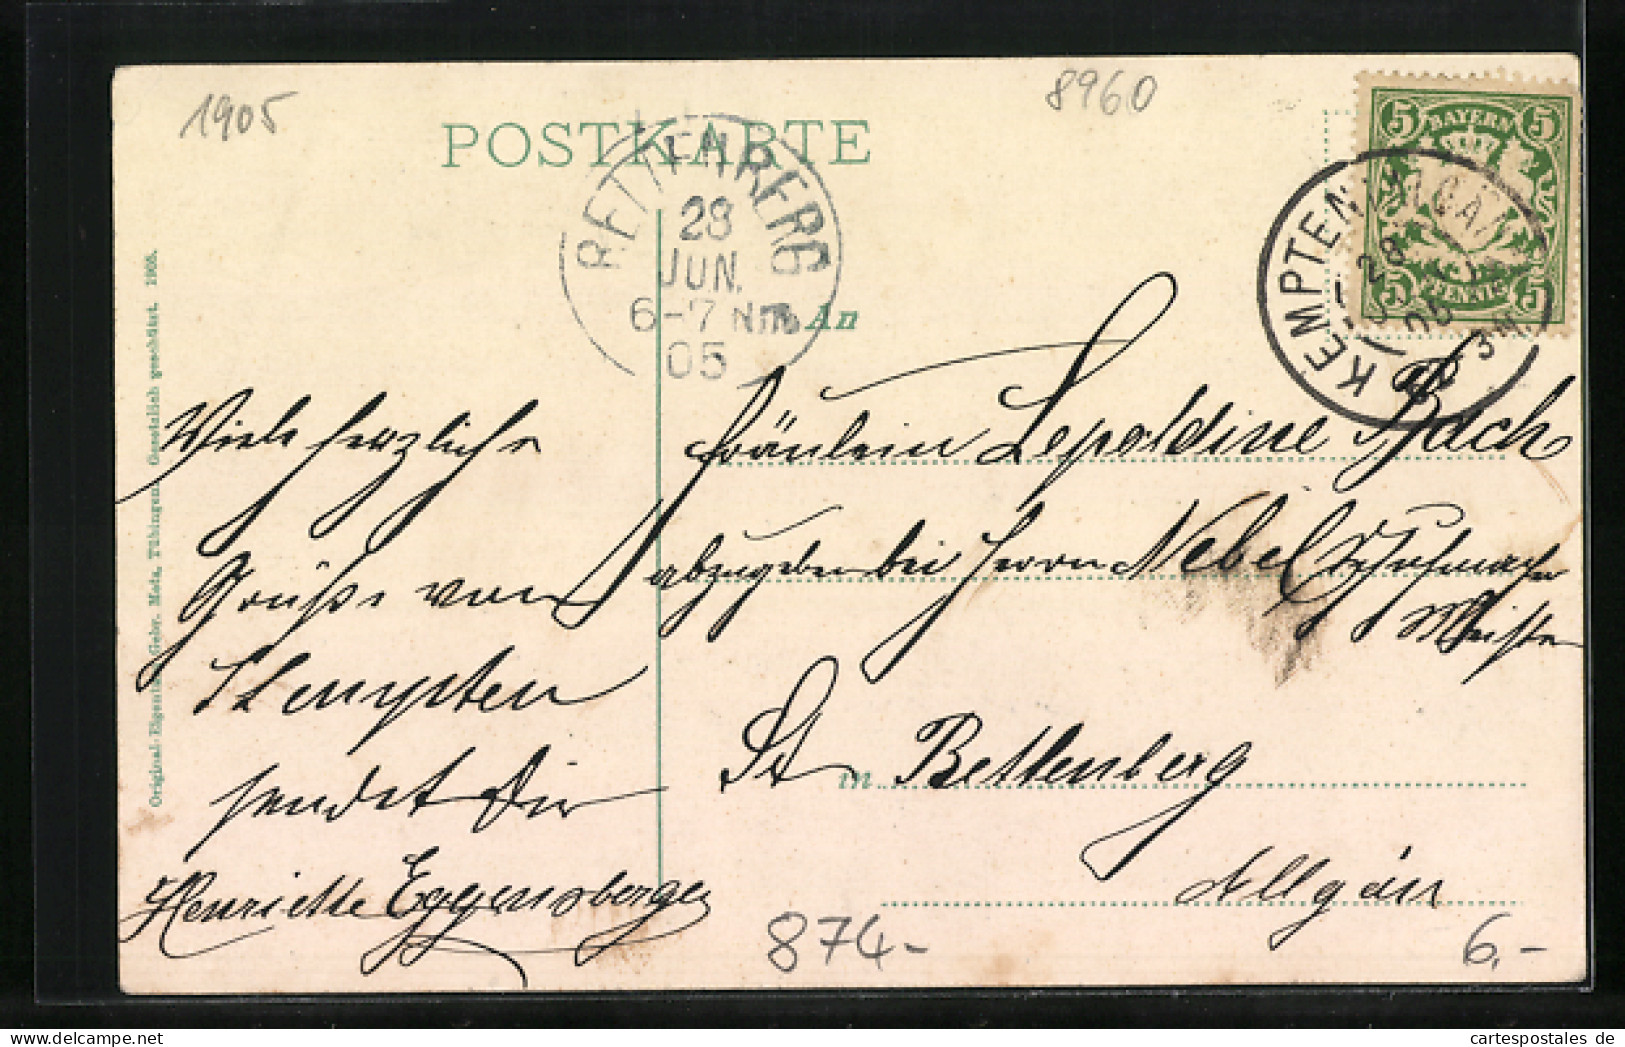 1905
8960
POSTKARTE
BAYERN
5 5
5 PFENNIG 5
KEMPTEN
28
05
RETTENBERG
28
JUN.
6-7 Nm.
05
An
Fräulein Lepoldine Bach
abzugeben bei Herrn Nebel Schuhmacher
Meister
in Rettenberg
Allgäu
Viele herzliche
Grüße von
Kempten
sendet Dir
Henriette Eggensberger
874-
6,-
Original-Eigentum Gebr. Metz, Tübingen. Gesetzlich geschützt. 1905.
cartespostales de